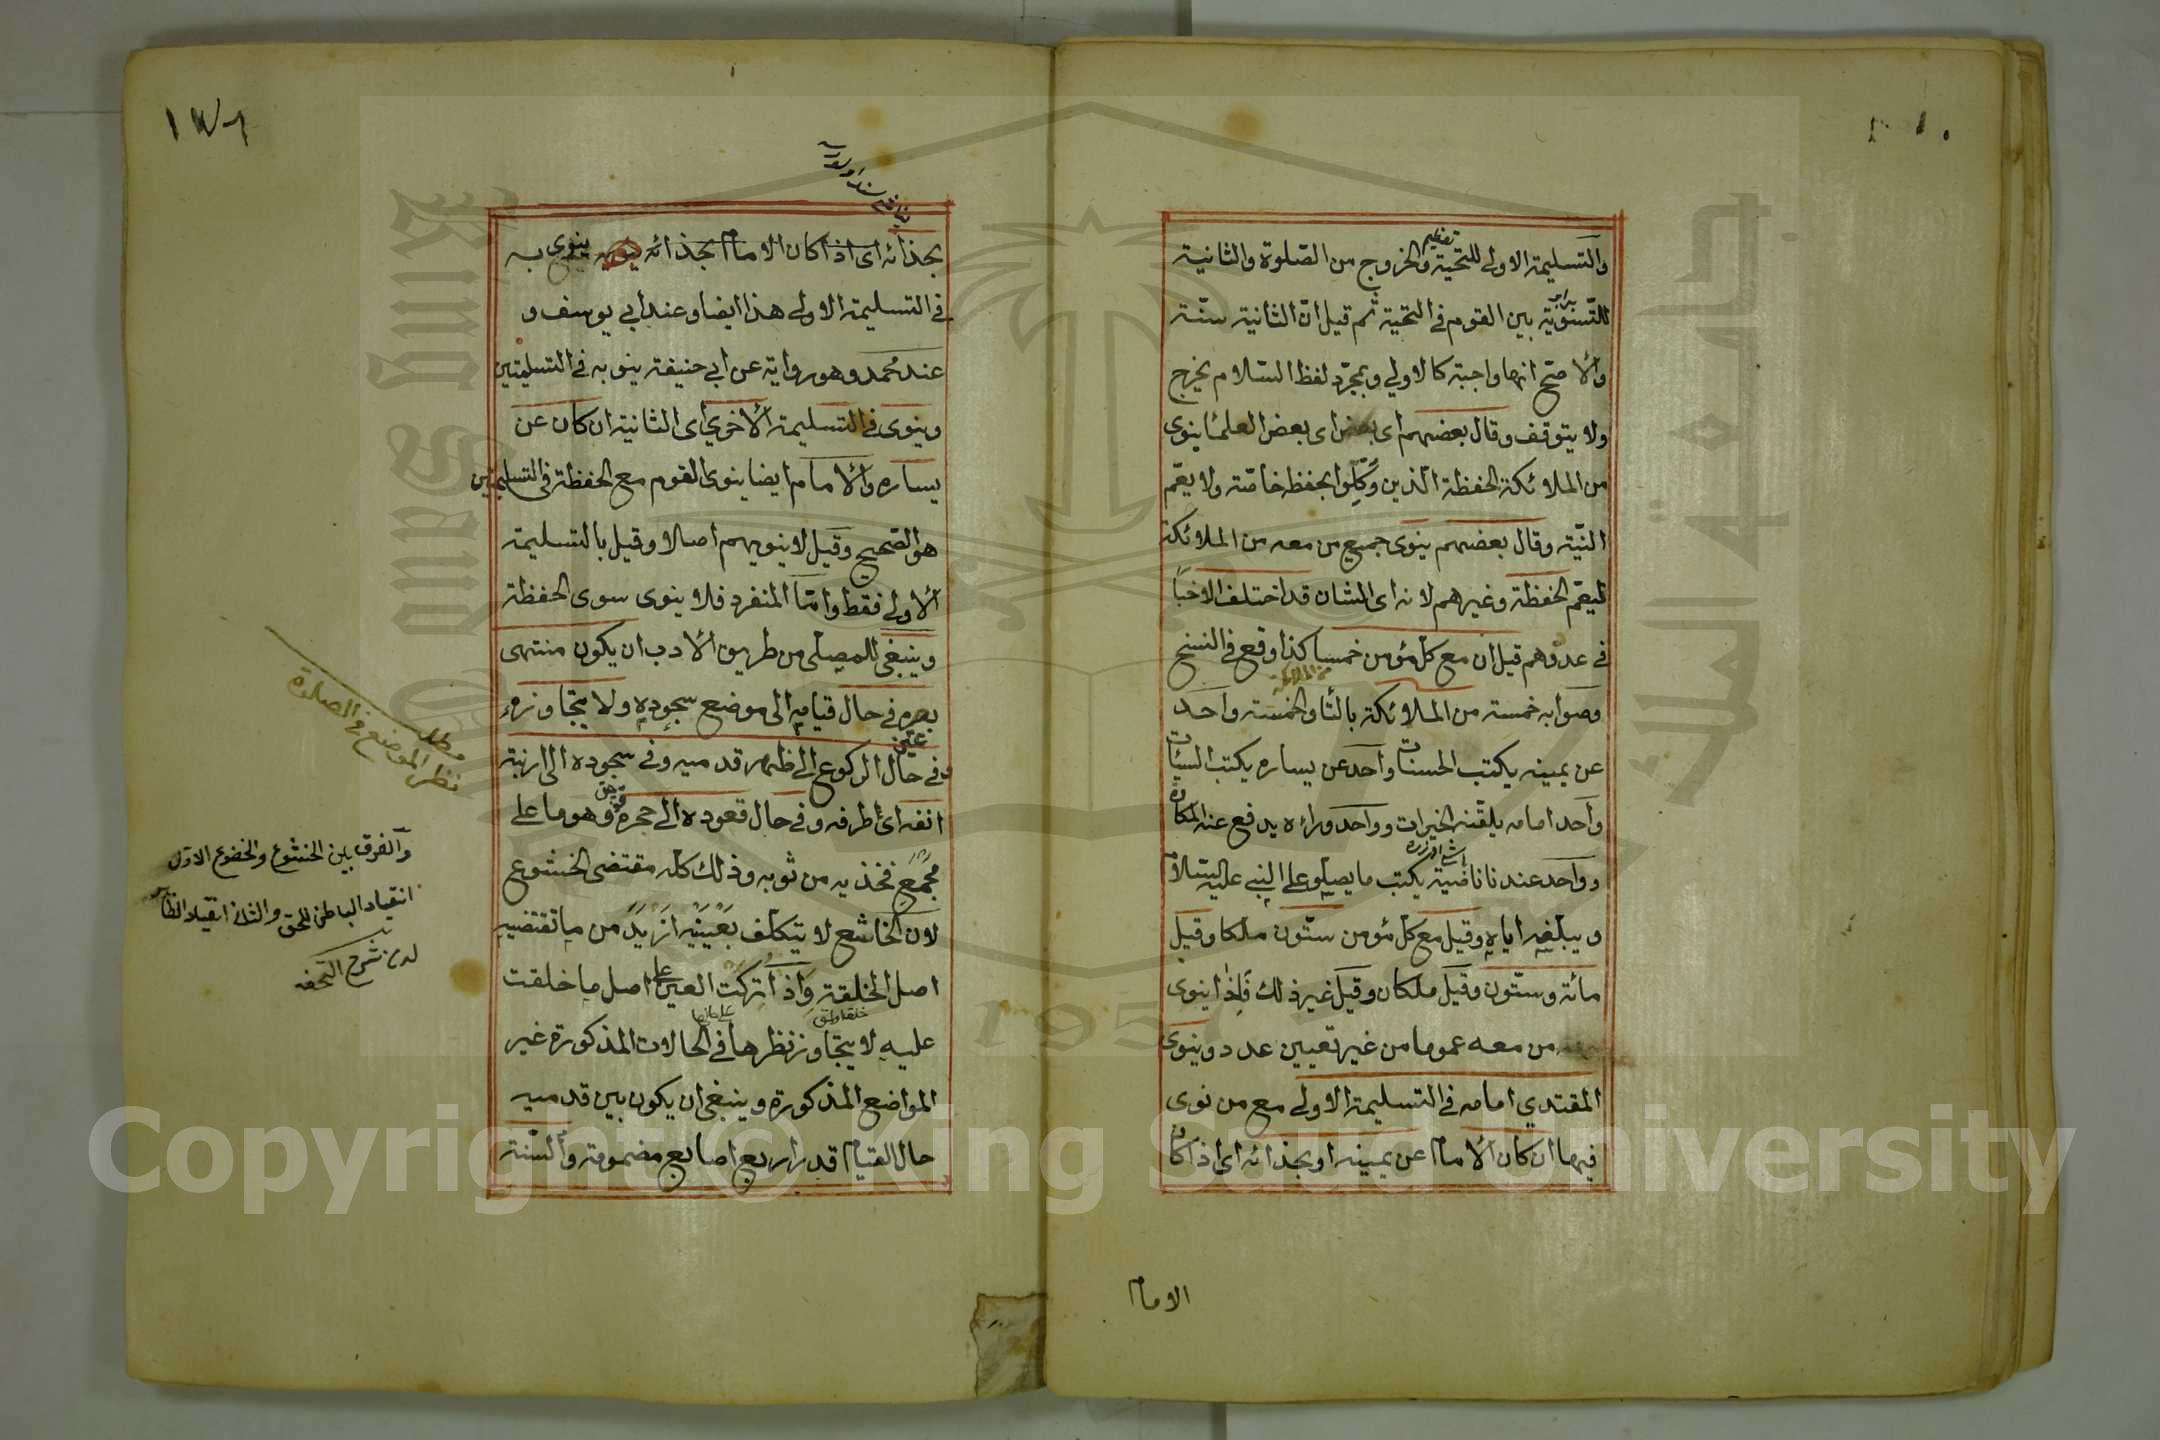 والتسليمة الاولى للتحية والخروج من الصلوة والثانية
للتسوية بين القوم في التحية ثم قيل ان الثانية سنة
والاصح انها واجبة كالاولى وبمجرد لفظ السلام يخرج
ولا يتوقف وقال بعضهم اى بعض اى بعض العلما ينوى
من الملائكة الحفظة الذين وكلوا بحفظه خاصة ولا يعمّ
النية وقال بعضهم ينوى جميع من معه من الملائكة
ليعم الحفظة وغيرهم لانه اى الشان قد اختلف الاخبا
في عددهم قيل ان مع كل مؤمن خمسا كذا وقع في النسخ
وصوابه خمسة من الملائكة بالتا والخمسة واحد
عن يمينه يكتب الحسنات واحد عن يساره يكتب السيئات
واحد امامه يلقنه الخيرات وواحد وراءه يدفع عنه المكاره
وواحد عند ناناصية يكتب ما يصلو على النبي عليه السلام
ويبلغه اياه وقيل مع كل مؤمن ستون ملكا وقيل
مائة وستون وقيل ملكان وقيل غير ذلك فاذا ينوى
من معه عموما من غير تعيين عدد وينوى
المقتدي امامه في التسليمة الاولى مع من نوى
فيها ان كان الامام عن يمينه او بحذائه اى اذا كان
الامام
١٣٦
بحذائه اى اذا كان الامام بحذائه ينوى به
في التسليمة الاولى هذا ايضا وعند ابي يوسف و
عند محمد وهو رواية عن ابي حنيفة ينو به في التسليمتين
وينوى في التسليمة الاخرى اى الثانية ان كان عن
يساره والامام ايضا ينوى القوم مع الحفظة في التسليمتين
هو الصحيح وقيل لا ينويهم اصلا وقيل بالتسليمة
الاولى فقط واما المنفرد فلا ينوى سوى الحفظة
وينبغى للمصلى من طريق الادب ان يكون منتهى
بصره في حال قيامه الى موضع سجوده ولا يتجاوزه
وفي حال الركوع الى ظهر قدميه وفي سجوده الى ارنبة
انفه اى طرفه وفي حال قعوده الى حجره وهو ما على
مجمع فخذيه من ثوبه وذلك كله مقتضى الخشوع
لان الخاشع لا يتكلف بعينيه ازيد من ما تقتضيه
اصل الخلقة واذا تركت العين على اصل ما خلقت
عليه لا يتجاوز نظرها في الحالات المذكورة غير
المواضع المذكورة وينبغى ان يكون بين قدميه
حال القيام قدر اربع اصابع مضمومة والسنة
مطلب
نظر المواضع في الصلوة
والفرق بين الخشوع والخضوع الاول
انقياد الباطن للحق والثانى انقياد الظاهر
له من شرح التحفه
Copyright © King Saud University
King Saud University
جامعة الملك سعود
1957